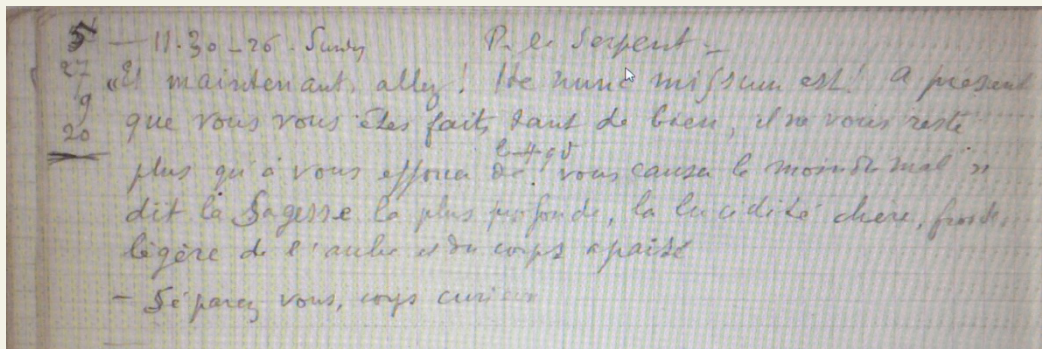 5 — 11.30 - 26. Sunday P. le Serpent —
27 « Et maintenant, allez ! Ite nunc missum est ! A présent
9 que vous vous êtes faits tant de bien, il ne vous reste
20 plus qu'à vous efforcer de vous causer le moindre mal »
dit la Sagesse la plus profonde, la lucidité chère, froide,
légère de l'aube et du corps apaisé
- Séparez vous, corps curieux